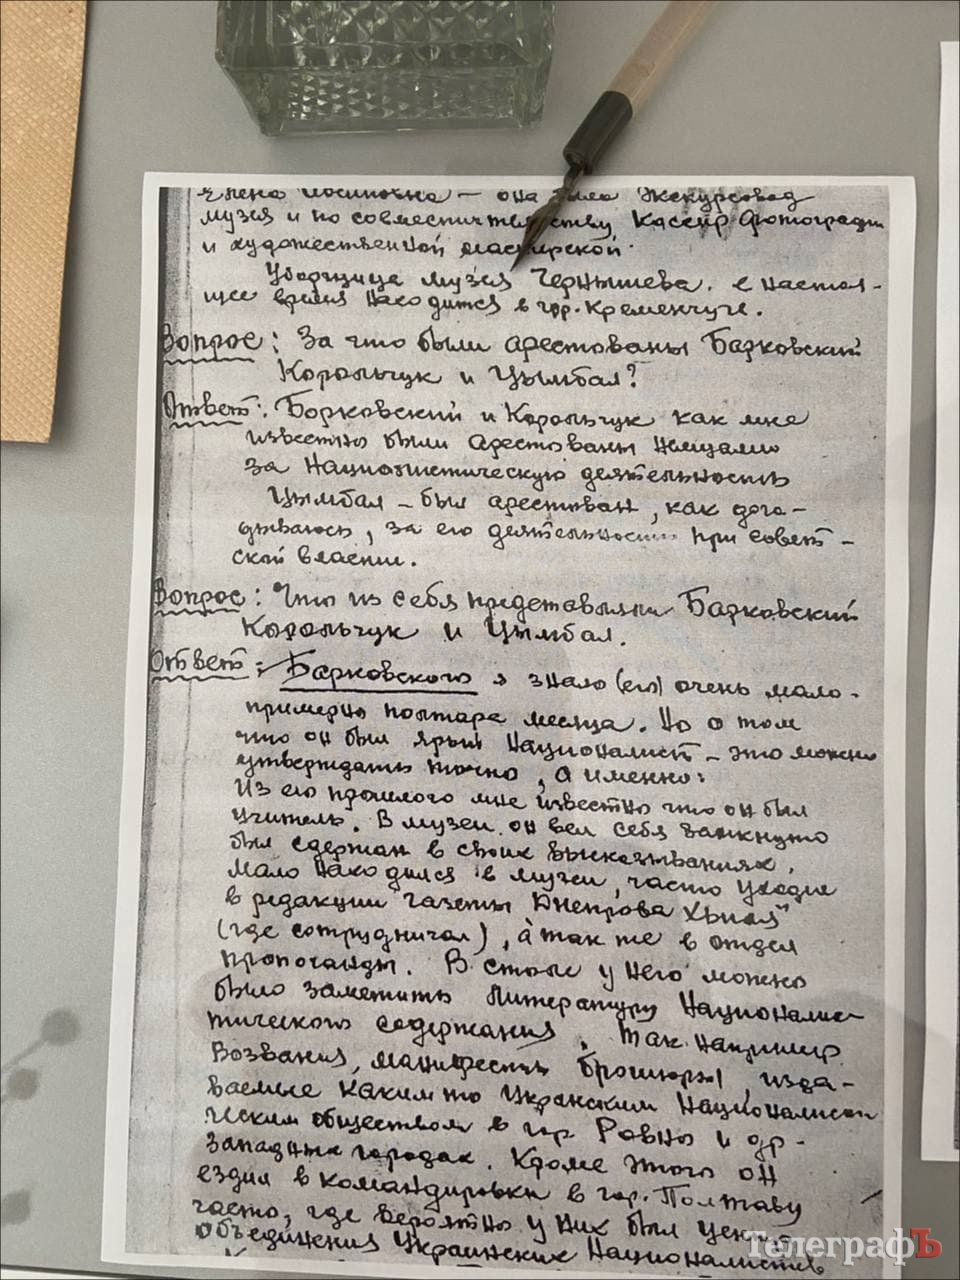 Иосиповна — она была экскурсовод
музея и по совместительству кассир фотографии
и художественной мастерской.
Уборщица музея Чернышева. в настоя-
щее время находится в гор. Кременчуге.
Вопрос: За что были арестованы Барковский
Корольчук и Цымбал?
Ответ: Борковский и Корольчук как мне
известно были арестованы немцами
за националистическую деятельность
Цымбал – был арестован, как дога-
дываюсь, за его деятельность при совет-
ской власти.
Вопрос: Что из себя представляли Барковский
Корольчук и Цымбал.
Ответ: Барковского я знаю (его) очень мало-
примерно полтара месяца. Но о том
что он был ярый националист – это можно
утверждать точно, а именно:
Из его прошлого мне известно что он был
учитель. В музеи он вел себя замкнуто
был сдержан в своих высказываниях.
Мало находился в музеи, часто уходил
в редакции газеты Днепрова Хвыля"
(где сотрудничал), а так же в отдел
пропоганды. В столе у него можно
было заметить литературу националис-
тического содержания. Так например
Возвания, манифесты брошюры, изда-
ваемые каким то укранским националисти-
ческим обществом в гор Ровно и др-
западных городах. Кроме этого он
ездил в командировки в гор. Полтаву
часто, где вероятно у них был центр
объединения украинских националистов
ТелеграфЪ